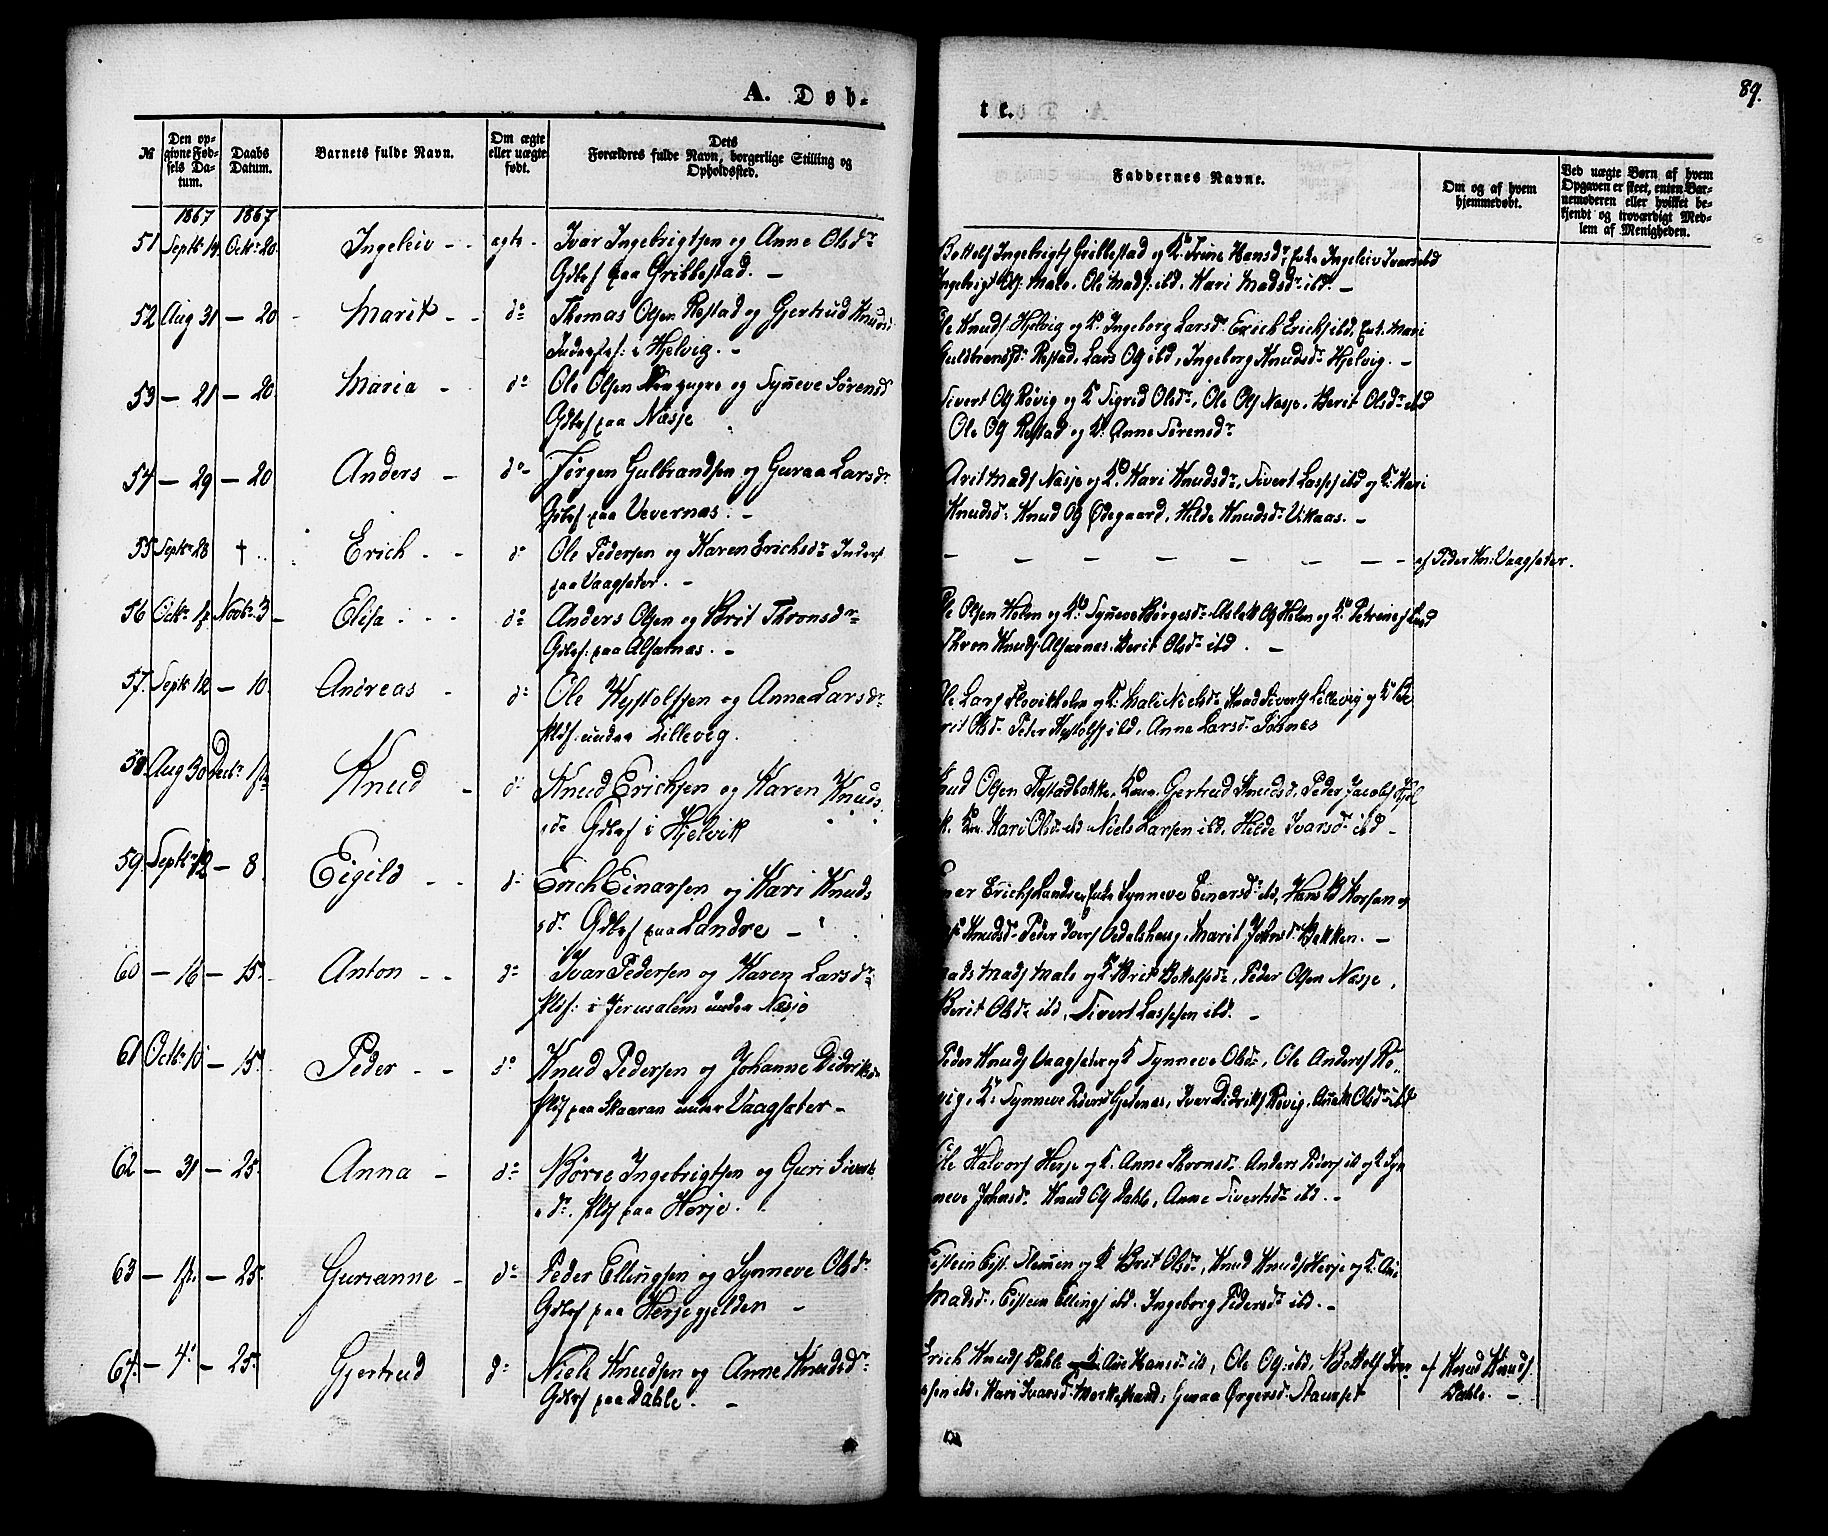 89.
A. Døb-
te.
№
Den op-
givne Fød-
sels Da-
tum.
Daabs
Datum.
Barnets fulde Navn.
Om ægte
eller uægte
født.
Dets
Forældres fulde Navn, borgerlige Stilling og
Opholdssted.
Faddernes Navne.
Om og af hvem
hjemmedøbt.
Ved uægte Børn af hvem
Opgaven er skeet, enten Bar-
nemoderen eller hvilket be-
kjendt og troværdigt Med-
lem af Menigheden.
1867 1867
51 Septb. 14. Octb. 20 Ingeleiv - - egte - Ivar Ingebrigtsen og Anne Olsdr
Gdbrf paa Gribbestad. -
Bottolf Ingebrigts Gribbestad og Ko Trine Hansdr, Enke Ingeleiv Ivarsd ibd
Male. Ole Mads ibd. Kari Madsdr ibd. -
52 Aug 31 - 20 - Marit - - do Thomas Olsen Restad og Gjertrud Knudsd
i Hjelvig. -
Ole Knuds. Hjelvig og K. Ingeborg Larsdr Erich Erichs ibd, Enk. Mari
Guldbrandsdr Restad, Lars Ols ibd, Ingeborg Knudsdr Hjelvig. -
53 - 21 - 20 Maria - do Ole Olsen og Synneve Sørensd
Gdbrf paa Næsje
Sivert Ols Røvig og K Sigrid Olsdr, Ole Ols Næsje. Berit Olsdr ibd
Ole Ols Restad og K. Anne Sørensdr
54 - 29 - 20 Anders - do - Jørgen Gulbrandsen og Guraa Larsdr
Gdbrf paa Vevernæs. -
Mads Næsje og Ko Kari Knudsdr, Sivert Lasses ibd og K. Kari
Knudsdr Knud Ols Ødegaard, Hilde Knudsdr Vikaas. -
55 Septb. 28 † Erich - - do Ole Pedersen og Karen Erichsdr Inders
paa Vaagsæter. -
- - - - - - af Peder Kn. Vaagsæter.
56 Octb. Novb. 3 - Elisa - - - do Anders Olsen og Brit Thronsdr
Gdbrf. paa Alsatnæs. -
Ole Olsen Holm og Ko Synneve Børgesdr Aslak Ols Holm og Ko
Thron Knuds. Alsatnæs. Berit Olsdr ibd. -
57. Septb. 12 - 10. Andreas - do Ole Kystolfsen og Anna Larsdr
Plds. under Lillevig.
Ole Lars Flovikholm og K. Mali Nielsdr Knud Siverts Lillevig og K.
Berit Olsdr Peder Kystolfs ibd, Anna Larsdr
58 Aug 30 Decb. 1ste Knud - do Knud Erichsen og Karen Knuds
sdr Gdbrf i Hjelvik
Knud Olsen Restadbakke. Kone. Gertrud Knudsd. Peder Jacobs Hjel
k. Kone Kari Olsdr ibd Niels Larsen ibd, Hilde Ivarsdr ibd -
59. Septb. 12 - 8. Eigild - - do Erich Einarsen og Kari Knuds
sdr Gdbrf paa Landre -
Einar Erichs Landre, Enke Synneve Einersdr ibd, Hans og
Knudsdr Peder Ivers Oedalshaug. Marit Johnsdr Bakken. -
60 - 16 - 15. Anton - - do Ivar Pedersen og Karen Larsdr
Plds. i Jerusalem under Næsje
Mads Mads Male og K. Brit Bottolfsdr, Peder Olsen Næsje,
Berit Olsdr ibd, Sivert Lassesen ibd. -
61 Octb. 10 - 15. Peder - - do Knud Pedersen og Johanne Didriksdr
Plds paa Skaaran under Vaagsæter -
Peder Knuds Vaagsæter og K Synneve Olsdr, Ole Anders Rø-
vig, K. Synneve Pedersd Gjetenæs, Ivar Didriks Røvig. Olsdr ibd
62 - 31 - 25. Anna - do Børre Ingebrigtsen og Guri Siverts
sdr. Plds paa Herje.
Ole Halvors Herje og K. Anne Thronsdr Anders Peders ibd og K Syn
neve Johnsdr Knud Ols Dahle, Anne Sivertsdr ibd. -
63 - - 25. Gurianne - do Peder Ellingsen og Synneve Olsdr
Gdbrf paa Herjegjelden -
Eistein Eist. Slemmen og K Brit Olsdr, Knud Knuds Herje og K.
Madsdr. Eistein Ellings ibd. Ingeborg Pedersdr ibd. -
64. - 4. - 25. Gjertrud do Niels Knudsen og Anne Knudsdr
Gdbrf paa Dahle. -
Erich Knuds Dahle K. Hansdr ibd, Ole Ols ibd, Bottolf Iver
sen ibd. Kari Ivarsdr Guraa Staurset
af Knud Knuds.
Dahle. -